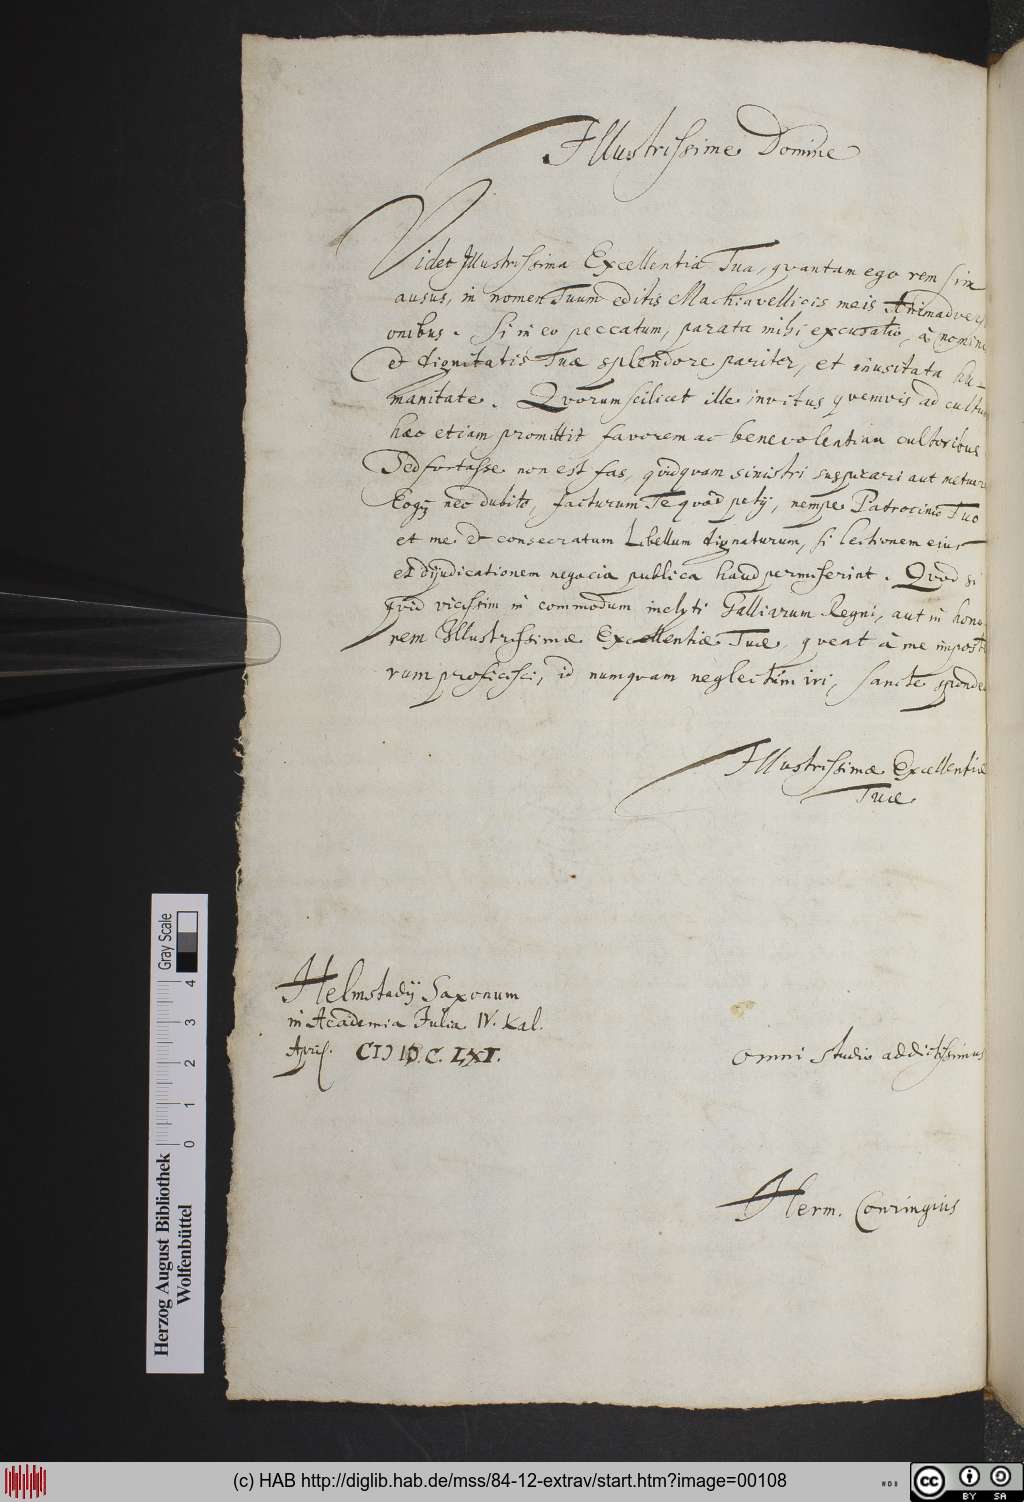 Illustrissime Domine
Videt Illustrissima Excellentia Tua, qvantam ego rem sim
ausus, in nomen Tuum editis Machiavellicis meis Animadversi
onibus. Si in eo peccatum, parata mihi excusatio, à nomine
et dignitatis Tuæ splendore pariter, et inusitata hu-
manitate. Qvorum scilicet ille invitus qvemvis ad cultum
hæc etiam promittit favorem ac benevolentiam cultoribus
Sed fortasse non est fas, qvidqvam sinistri suspicari aut metuere
Eoqz nec dubito, facturum Te qvod petij, nempe Patrocinio Tuo
et me et consecratum Libellum dignaturum, si lectionem ejus
et dijudicationem negocia publica haud permiserint. Qvod si
qvid vicissim in commodum inclyti Galliarum Regni, aut in hono
rem Illustrissimæ Excellentiæ Tuæ qveat à me imposte
rum proficisci, id numqvam neglectum iri, sancte spondeo
Illustrissimæ Excellentiæ
Tuæ
Helmstadij Saxonum
in Academia Julia IV. Kal.
April. CIↃ IↃC. LXI.
omni studio addictissimus
Herm. Conringius
Herzog August Bibliothek
Wolfenbüttel
Gray Scale
0 1 2 3 4
(c) HAB http://diglib.hab.de/mss/84-12-extrav/start.htm?image=00108
WDB
cc BY SA